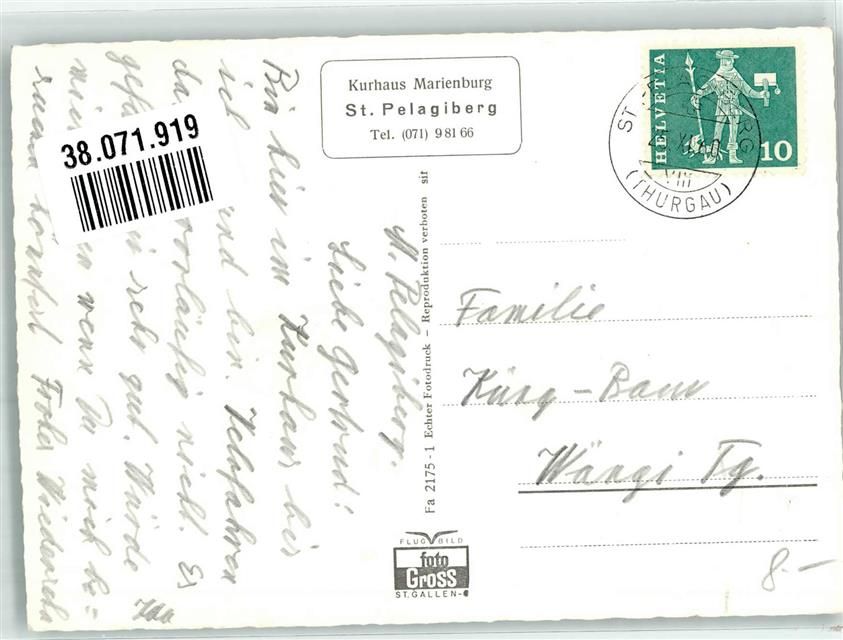 Kurhaus Marienburg
St. Pelagiberg
Tel. (071) 9 81 66
HELVETIA
10
(THURGAU)
38.071.919
St. Pelagiberg.
Liebe Gertrud!
Bin hier im Kurhaus bei
ich und bin.
vorläufig nicht. Es
sehr gut. Würde
wenn Du mich be=
suchen könntest Frohes Wiedersehn
Ida
Fa 2175-1 Echter Fotodruck – Reproduktion verboten sif
Familie
Küng - Baum
Wängi Tg.
FLUGBILD
foto
Gross
ST. GALLEN
8.–